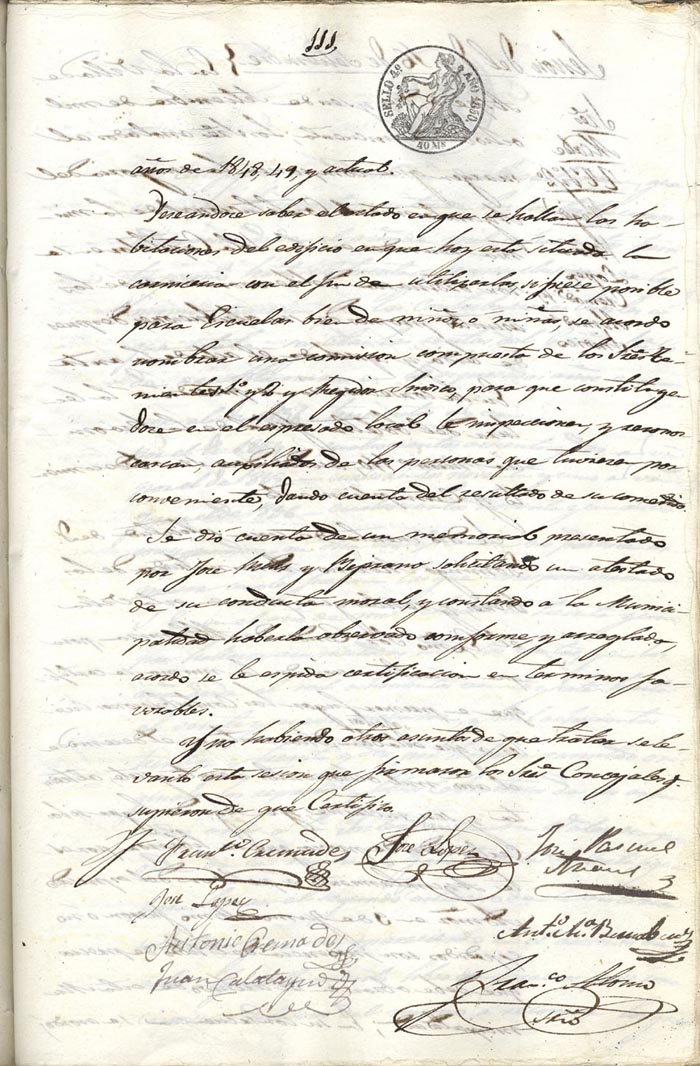 111.
SELLO 4º AÑO 1850.
40 Ms
años de 1848, 49, y actual.
Deseandose saber el estado en que se hallan las ha-
bitaciones del edificio en que hoy esta situada la
carniceria con el fin de utilizarlas si fuese posible
para Escuelas bien de niños o niñas, se acordo
nombrar una comision compuesta de los Sres. Te-
nientes 1º y 2º y Regidor Sindico, para que constituyen-
dose en el espresado local le inspeccionen, y reconos-
can, auxiliados de las personas que tuvieren por
conveniente, dando cuenta del resultado de su cometido.
Se dió cuenta de un memorial presentado
por José y solicitando un atestado
de su conducta moral, y constando a la Munici-
palidad haberla observado conforme, y arreglada,
acordo se le espida certificacion en terminos fa-
vorables.
Y no habiendo otros asuntos de que tratar se le-
vanto esta sesion que firmaron los Sres. Concejales q.
supieron de que Certifico.
Franco. Cremades José Lopez José Pascual
José Lopez
Antonio Cremades Anto. Ma. Bernabeu
Juan Calatayud
Franco. Alonso
Srio